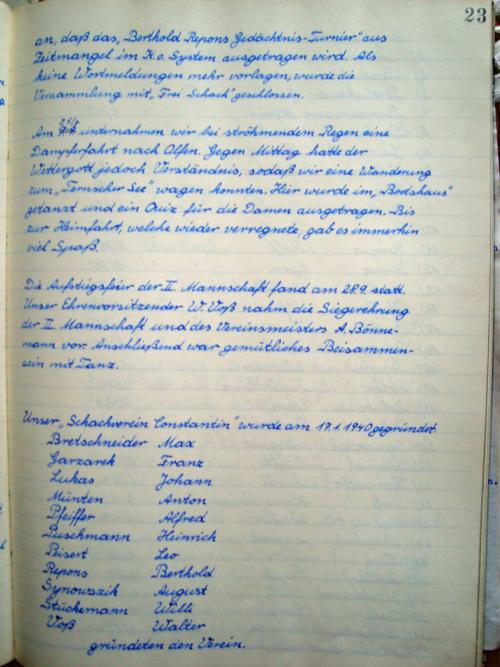 23
an, daß das „Berthold Repons Gedächtnis-Turnier" aus
Zeitmangel im K.o. System ausgetragen wird. Als
keine Wortmeldungen mehr vorlagen, wurde die
Versammlung mit „Frei Schach" geschlossen.
Am unternahmen wir bei ströhmendem Regen eine
Dampferfahrt nach Olfen. Gegen Mittag hatte der
Wettergott jedoch Verständnis, sodaß wir eine Wanderung
zum „Ternscher See" wagen konnten. Hier wurde im „Bootshaus"
getanzt und ein Quiz für die Damen ausgetragen. Bis
zur Heimfahrt, welche wieder verregnete, gab es immerhin
viel Spaß.
Die Aufstiegsfeier der II. Mannschaft fand am 28.9. statt.
Unser Ehrenvorsitzender W. Voß nahm die Siegerehrung
der II. Mannschaft und des Vereinsmeisters A. Bönne-
mann vor. Anschließend war gemütliches Beisammen-
sein mit Tanz.
Unser „Schachverein Constantin" wurde am 17.1.1940 gegründet.
Bretschneider Max
Garzarek Franz
Lukas Johann
Münten Anton
Pfeiffer Alfred
Puschmann Heinrich
Peisert Leo
Repons Berthold
Synowszik August
Stückemann Willi
Voß Walter
gründeten den Verein.